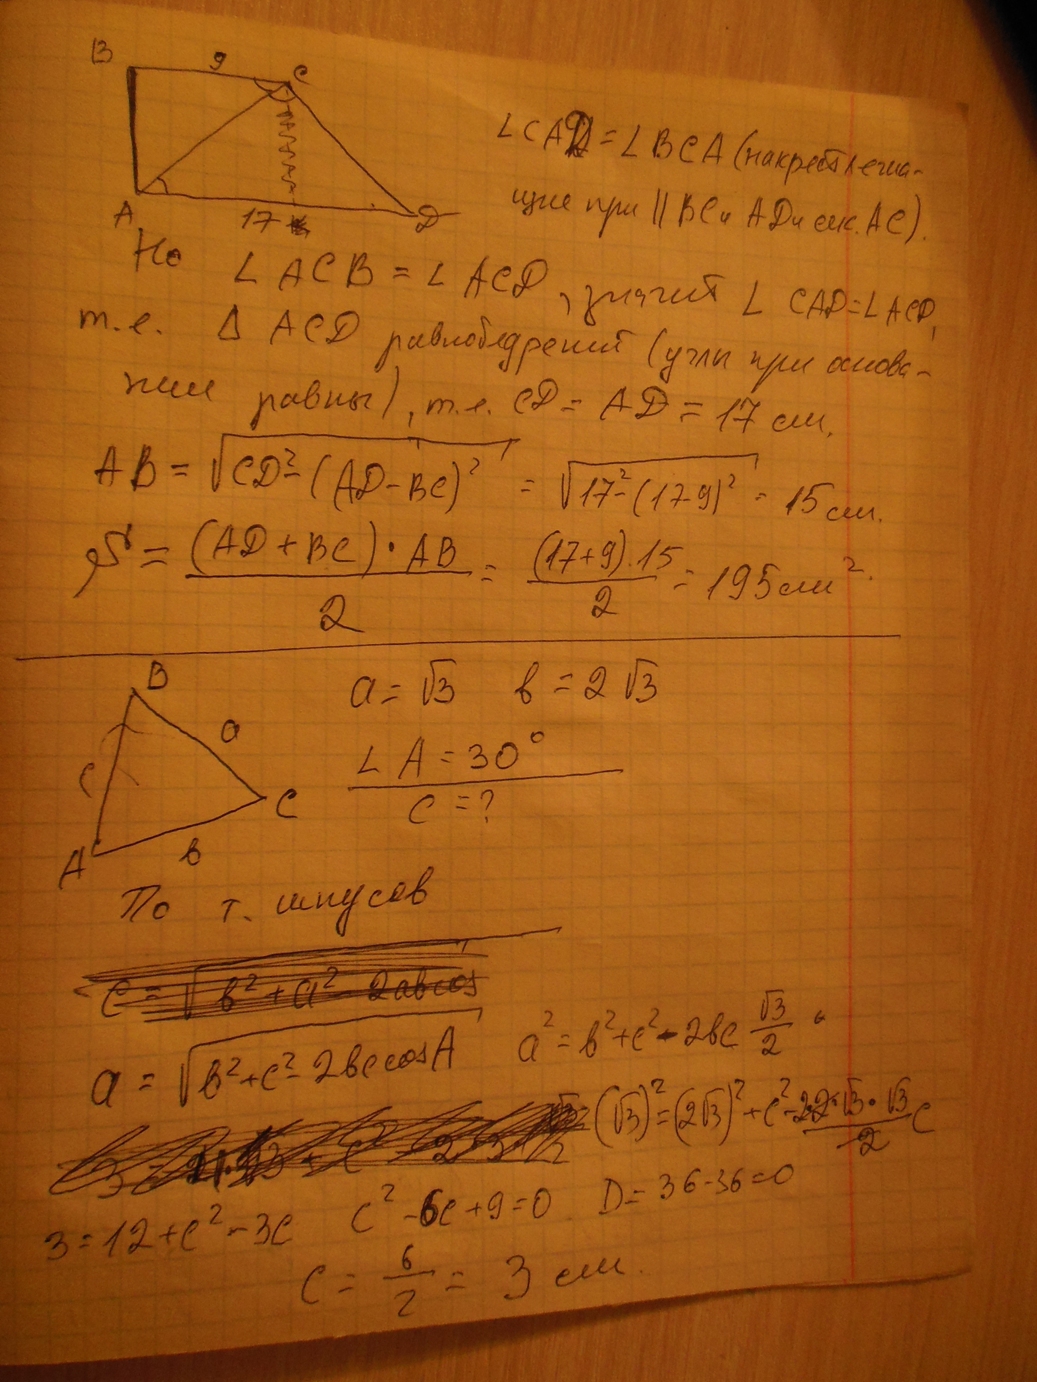 B 9 C
A 17 D
∠CAD = ∠BCA (накрест лежа-
щие при || BC и AD и сек. AC).
Но ∠ACB = ∠ACD, значит ∠CAD=∠ACD,
т.е. Δ ACD равнобедрений (углы при основа-
нии равны), т.е. CD = AD = 17 см.
AB = √CD² - (AD - BC)² = √17² - (17-9)² = 15 см.
S = (AD + BC) · AB / 2 = (17+9) · 15 / 2 = 195 см².
B
a = √3 в = 2√3
a
c
∠A = 30°
C
c = ?
A в
По т. синусов
c = √в² + a² - 2ав cos
a = √в² + c² - 2вc cosA a² = в² + c² - 2вc √3/2
(√3)² = (2√3)² + c² - 2·2·√3·√3/2 c
3 = 12 + c² - 3c c² - 6c + 9 = 0 D = 36 - 36 = 0
c = 6/2 = 3 см.